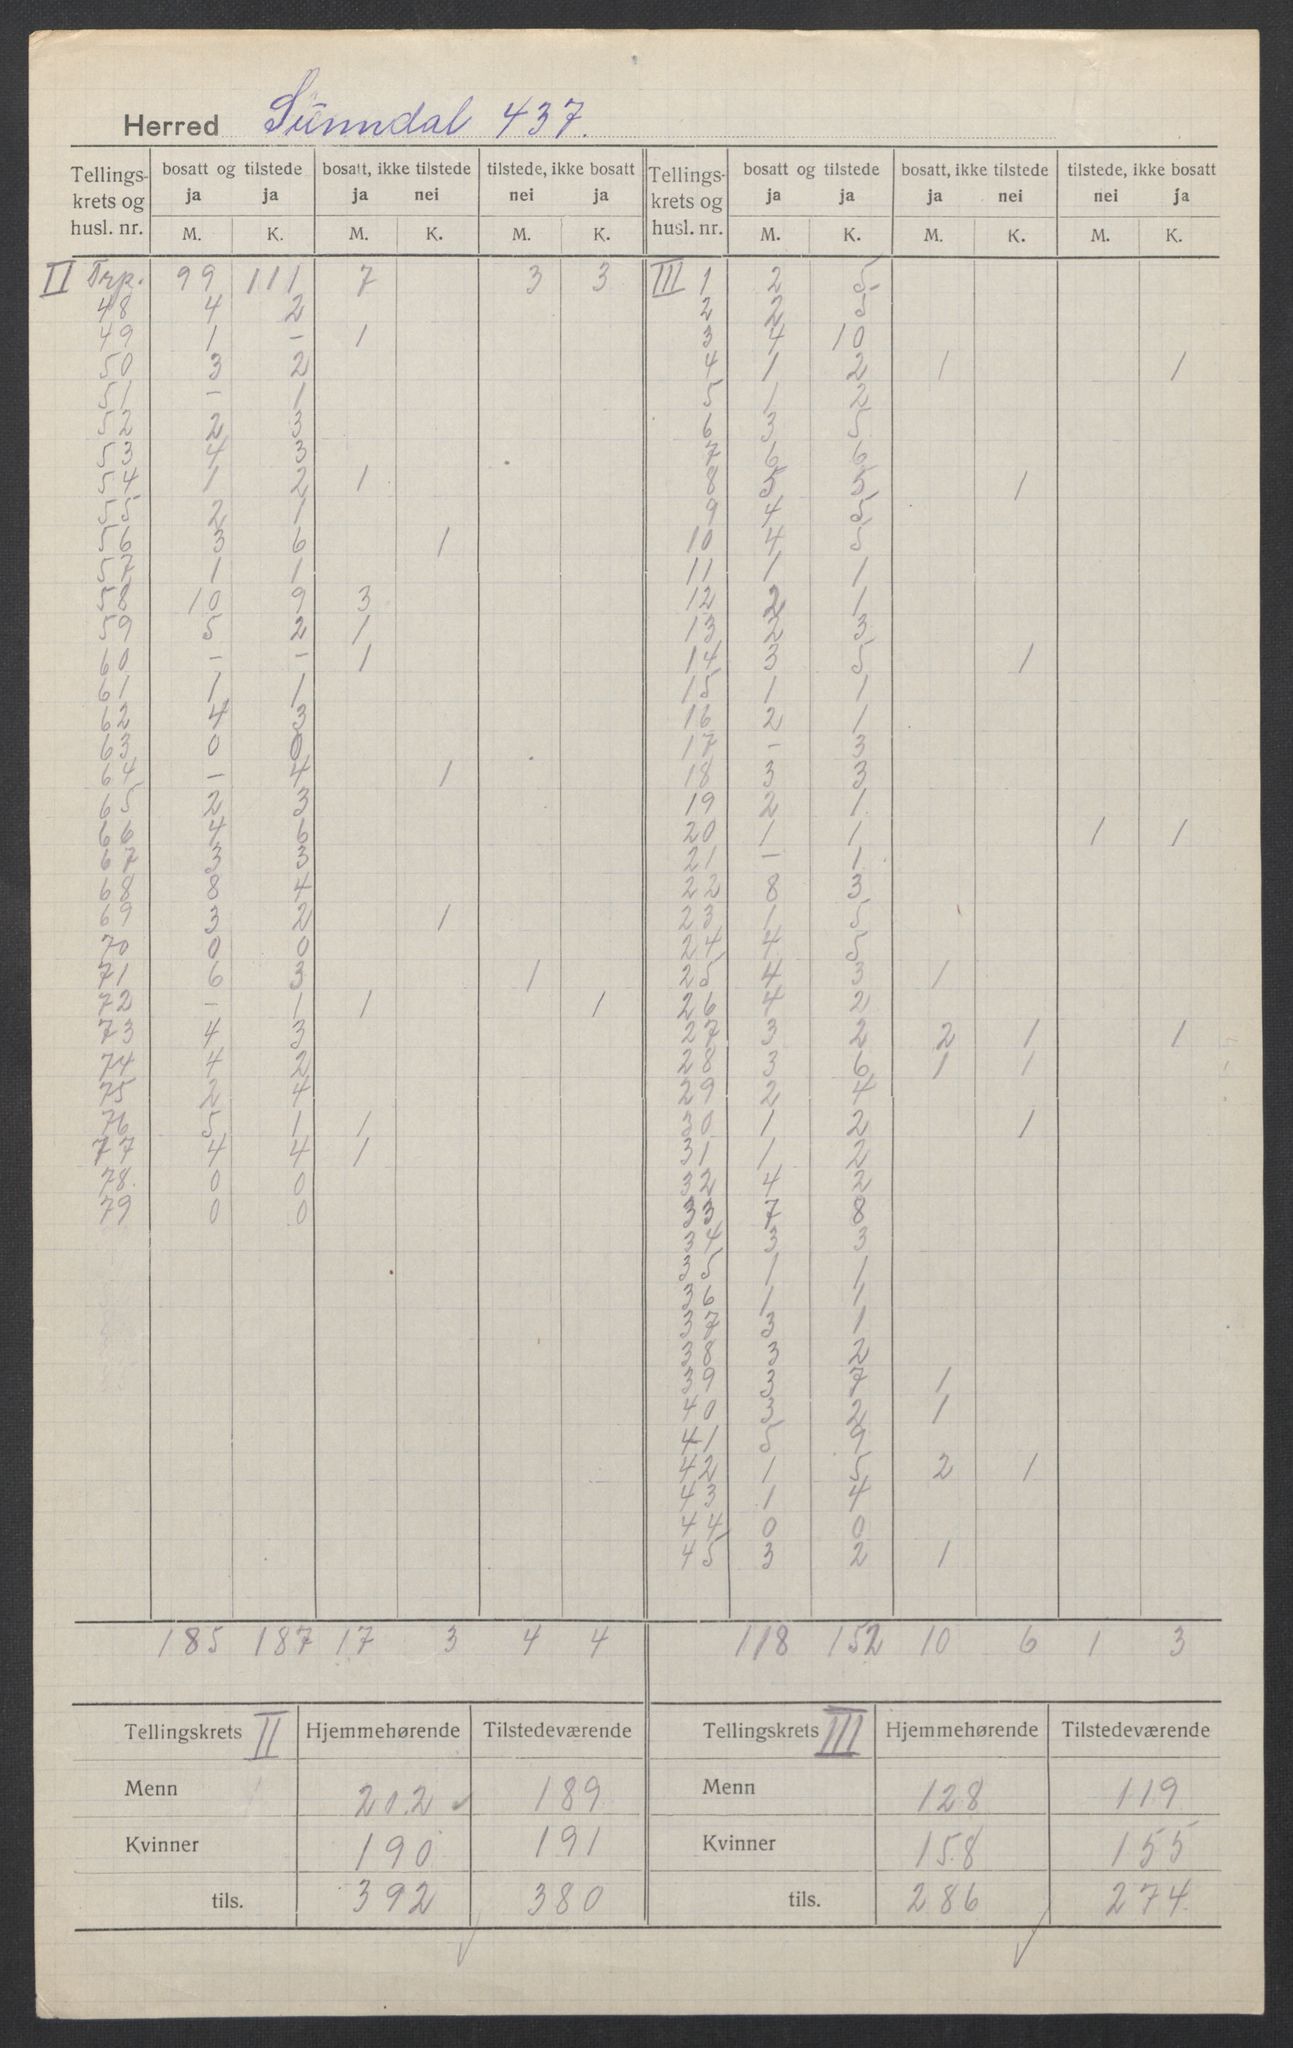 Herred Sunndal 437.
Tellingskrets og husl. nr. | bosatt og tilstede ja ja | bosatt, ikke tilstede ja nei | tilstede, ikke bosatt nei ja | Tellingskrets og husl. nr. | bosatt og tilstede ja ja | bosatt, ikke tilstede ja nei | tilstede, ikke bosatt nei ja
M. K. M. K. M. K. M. K. M. K. M. K.
II Trp. 99 111 7 3 3
48 4 2
49 1 - 1
50 3 2
51 - 1
52 2 3
53 4 3
54 1 2 1
55 2 1
56 3 6 1
57 1 1
58 10 9 3
59 5 2 1
60 - - 1
61 1 1
62 4 3
63 0 0
64 - 4 1
65 2 3
66 4 6
67 3 3
68 8 4
69 3 2 1
70 0 0
71 6 3 1
72 - 1 1 1
73 4 3
74 4 2
75 2 4
76 5 1 1
77 4 4 1
78. 0 0
79 0 0
185 187 17 3 4 4
III 1 2 5
2 2 5
3 4 10
4 1 2 1 1
5 1 2
6 3 5
7 6 6
8 5 3 1
9 4 5
10 4 5
11 1 1
12 2 1
13 2 3
14 3 5 1
15 1 1
16 2 1
17 - 3
18 3 3
19 2 1
20 1 1 1 1
21 - 1
22 8 3
23 1 5
24 4 5
25 4 3 1
26 4 2
27 3 2 2 1 1
28 3 6 1 1
29 2 4
30 1 2 1
31 1 2
32 4 2
33 7 8
34 3 3
35 1 1
36 1 1
37 3 1
38 3 2
39 3 7 1
40 3 2 1
41 5 9
42 1 5 2 1
43 1 4
44 0 0
45 3 2 1
118 152 10 6 1 3
Tellingskrets II Hjemmehørende Tilstedeværende
Menn 202 189
Kvinner 190 191
tils. 392 380
Tellingskrets III Hjemmehørende Tilstedeværende
Menn 128 119
Kvinner 158 155
tils. 286 274